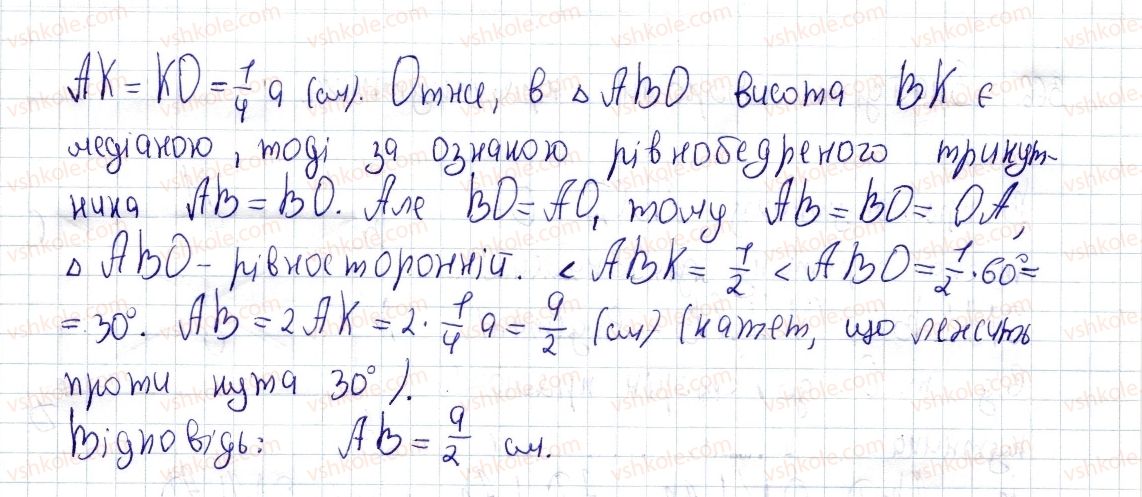 AK = KO = 1/4 a (см). Отже, в △ ABO висота BK є
медіаною, тоді за ознакою рівнобедреного трикут-
ника AB = BO. Але BO = AO, тому AB = BO = OA,
△ ABO – рівносторонній. < ABK = 1/2 < ABO = 1/2 · 60° =
= 30°. AB = 2 AK = 2 · 1/4 a = a/2 (см) (катет, що лежить
проти кута 30°).
Відповідь: AB = a/2 см.
vshkole.com